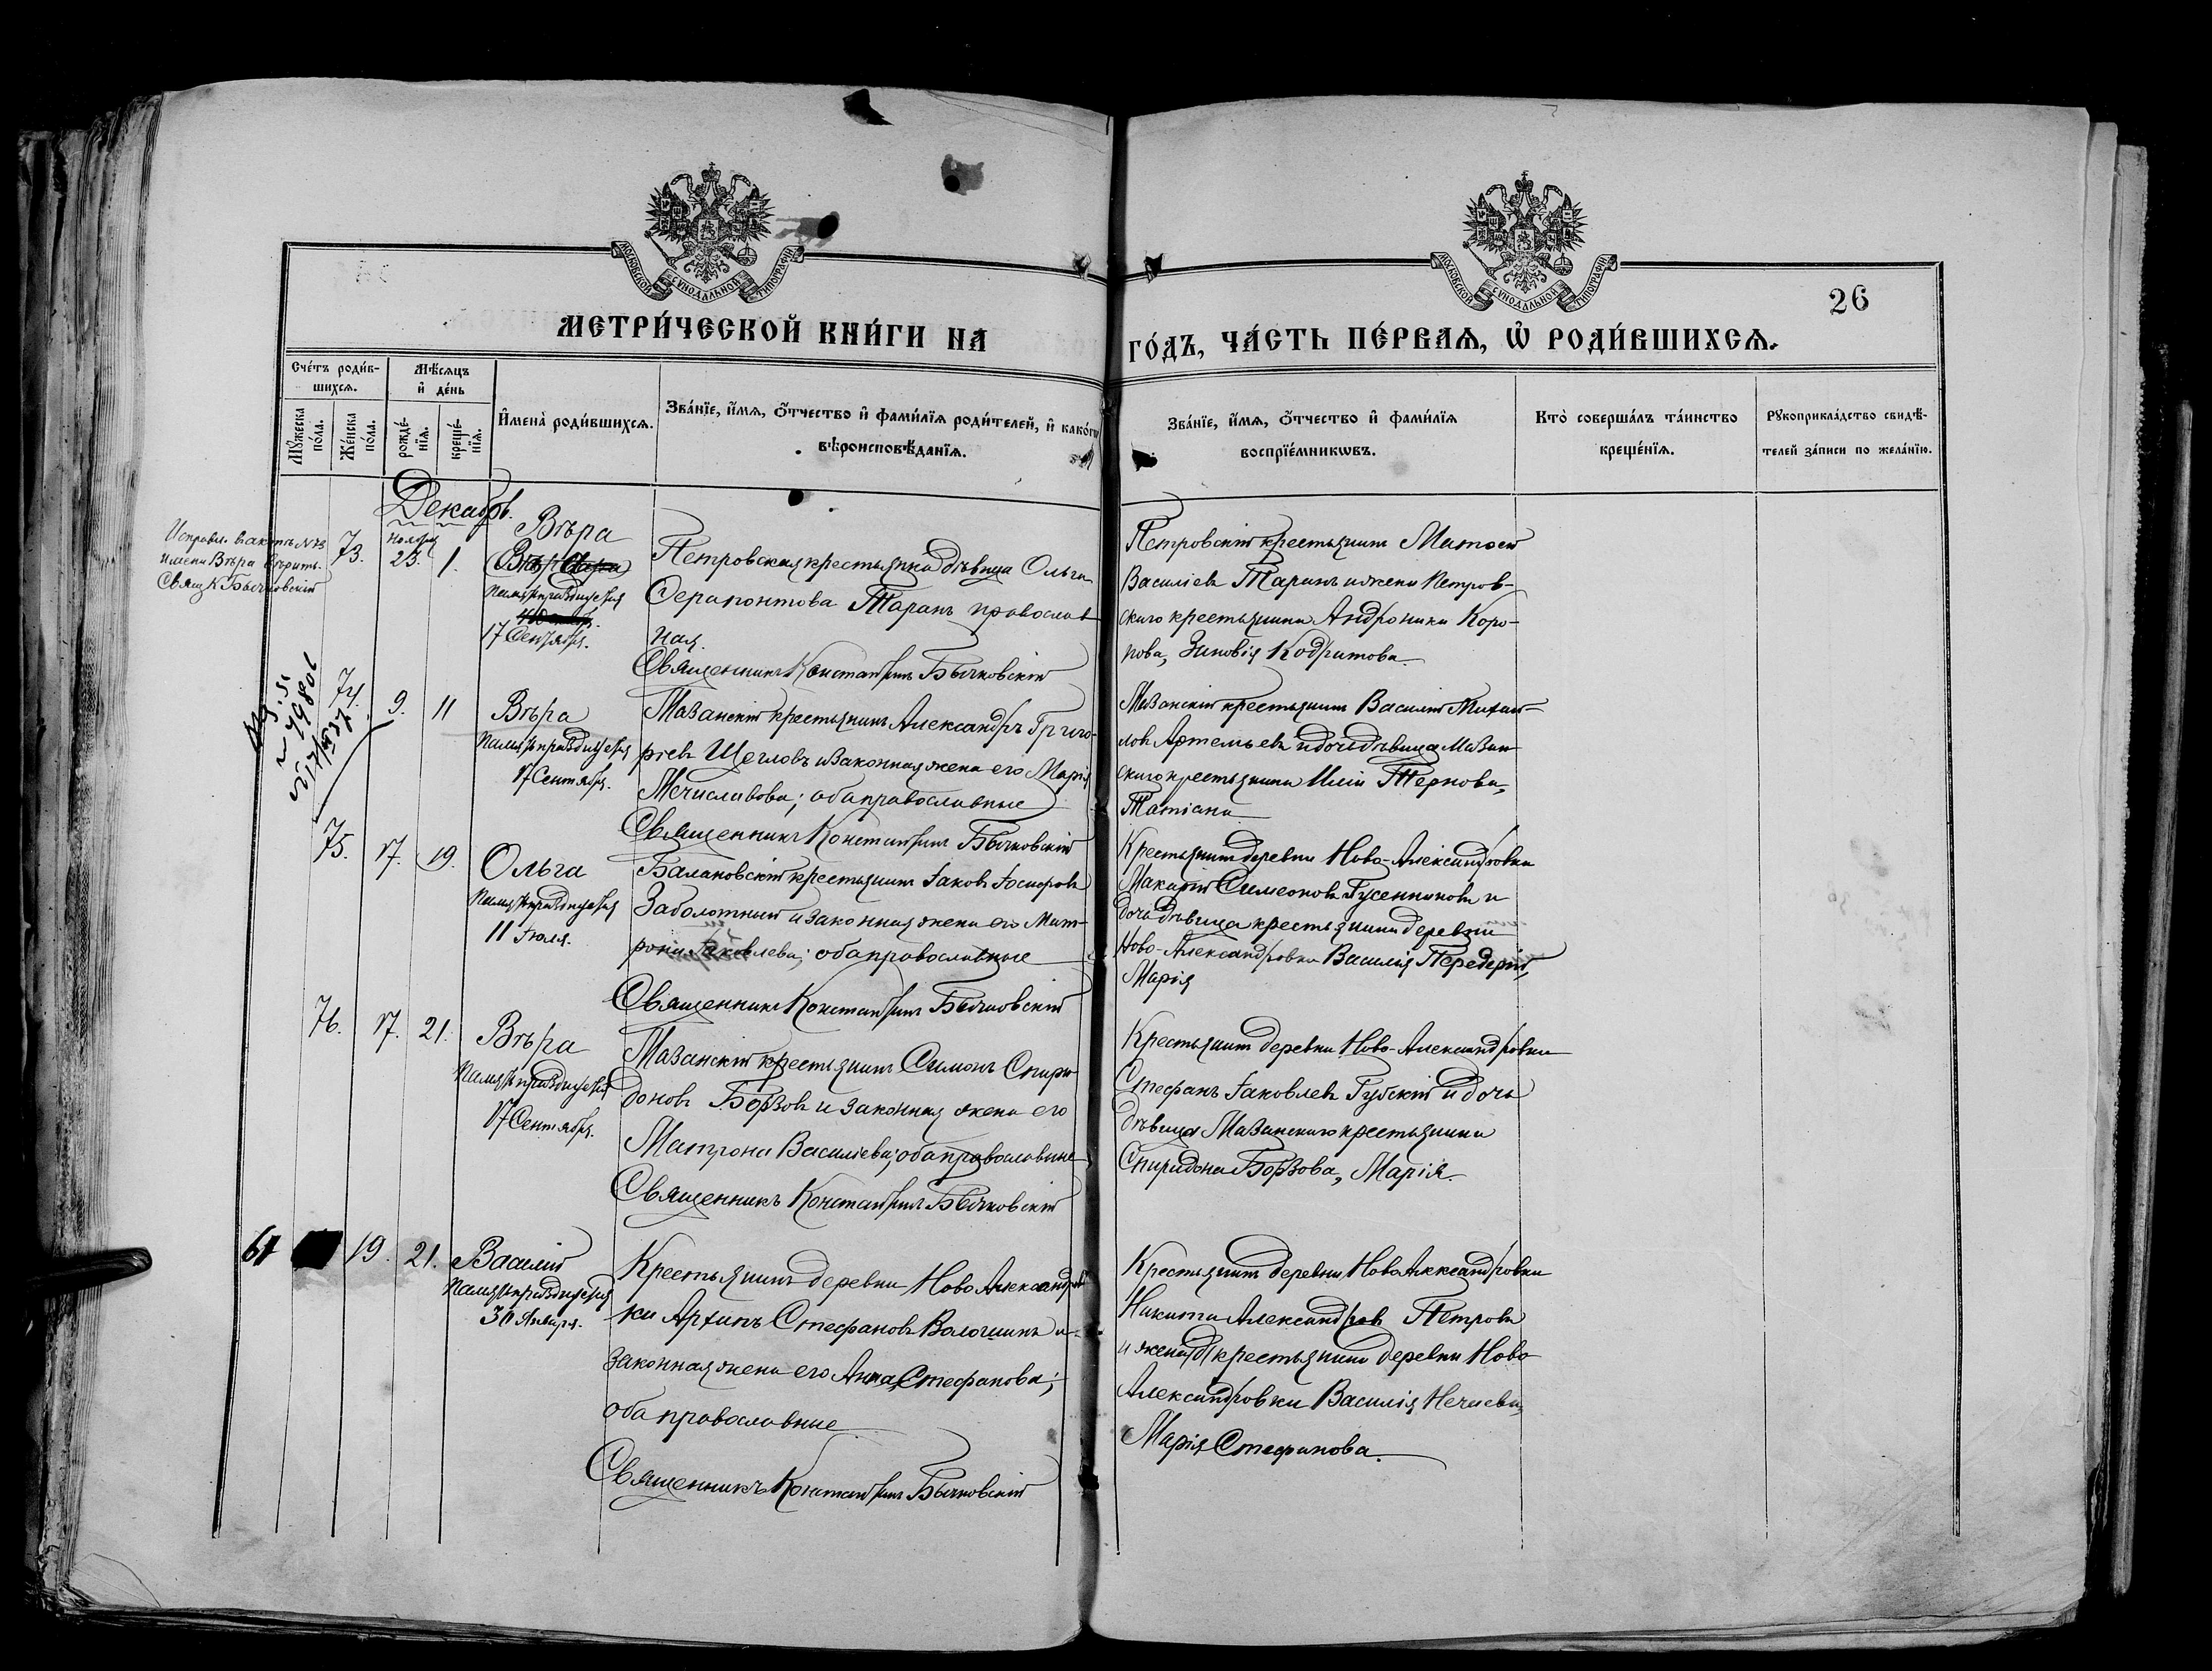 МОСКОВСКОЙ СѴНОДАЛЬНОЙ ТИПОГРАФІИ
МОСКОВСКОЙ СѴНОДАЛЬНОЙ ТИПОГРАФІИ
26
МЕТРИ́ЧЕСКОЙ КНИ́ГИ НА
ГО́ДЪ, ЧА́СТЬ ПЕ́РВАѦ, Ѡ҆ РОДИ́ВШИХСѦ.
Сче́тъ роди́в-
шихсѧ.
Мꙋжеска по́ла.
Же́нска по́ла.
Мѣ́сѧцъ
и҆ де́нь
рожде́-
нїѧ.
креще́-
нїѧ.
И҆мена̀ роди́вшихсѧ.
Зва́нїе, и҆́мѧ, ѻ҆́тчество и҆ фами́лїѧ роди́телей, и҆ како́гѡ
вѣроисповѣ́данїѧ.
Зва́нїе, и҆́мѧ, ѻ҆́тчество и҆ фами́лїѧ
воспрїе́мникѡвъ.
Кто̀ соверша́лъ та́инство
креще́нїѧ.
Рꙋкоприкла́дство свидѣ́-
телей за́писи по жела́нїю.
Декабрь.
Исправл. въ актѣ №73
имени Вѣра вѣрить.
Свящ. К Бычковскій
73.
Ноября
23.
1.
Вѣра
Память празднуется
17 Сентября.
Петровская крестьянка дѣвица Ольга
Серапонтова Таранъ православ
ная.
Священникъ Константинъ Бычковскій
Петровскій крестьянинъ
Василіевъ Таранъ и жена Петров-
скаго крестьянина Андроника Коро-
Зиновія Кодратова.
74.
9.
11
Вѣра
Память празднуется
17 Сентября.
Мазанскій крестьянинъ Александръ Григо-
ріевъ Щегловъ и законная жена его Марія
Мечиславова; оба православные
Священникъ Константинъ Бычковскій
Мазанскій крестьянинъ Василій Михаи-
ловъ Артемьевъ и дочь дѣвица Мазан-
скаго крестьянина Иліи Тернова,
Татіана
75.
17.
19.
Ольга
Память празднуется
11 Іюля.
крестьянинъ Іаковъ
Заболотный и законная жена его Мат-
рона Іаковлева; оба православные
Священникъ Константинъ Бычковскій
Крестьянинъ деревни Ново-Александровки
Макарій Симеоновъ Гусенниковъ и
дочь дѣвица крестьянина деревни
Ново-Александровки Василія Передерій,
Марія
76.
17.
21.
Вѣра
Память празднуется
17 Сентября.
Мазанскій крестьянинъ Симонъ Спири-
доновъ Борзовъ и законная жена его
Матрона Василіева; оба православные
Священникъ Константинъ Бычковскій
Крестьянинъ деревни Ново-Александровки
Стефанъ Іаковлевъ Губскій и дочь
дѣвица Мазанскаго крестьянина
Спиридона Борзова, Марія.
61
19.
21.
Василій
Память празднуется
30 Января.
Крестьянинъ деревни Ново Александров
ки Архипъ Стефановъ Волошинъ и
законная жена его Анна Стефанова;
оба православные
Священникъ Константинъ Бычковскій
Крестьянинъ деревни Ново Александровки
Никита Александровъ Петровъ
и жена крестьянина деревни Ново
Александровки Василія Нечаева,
Марія Стефанова.